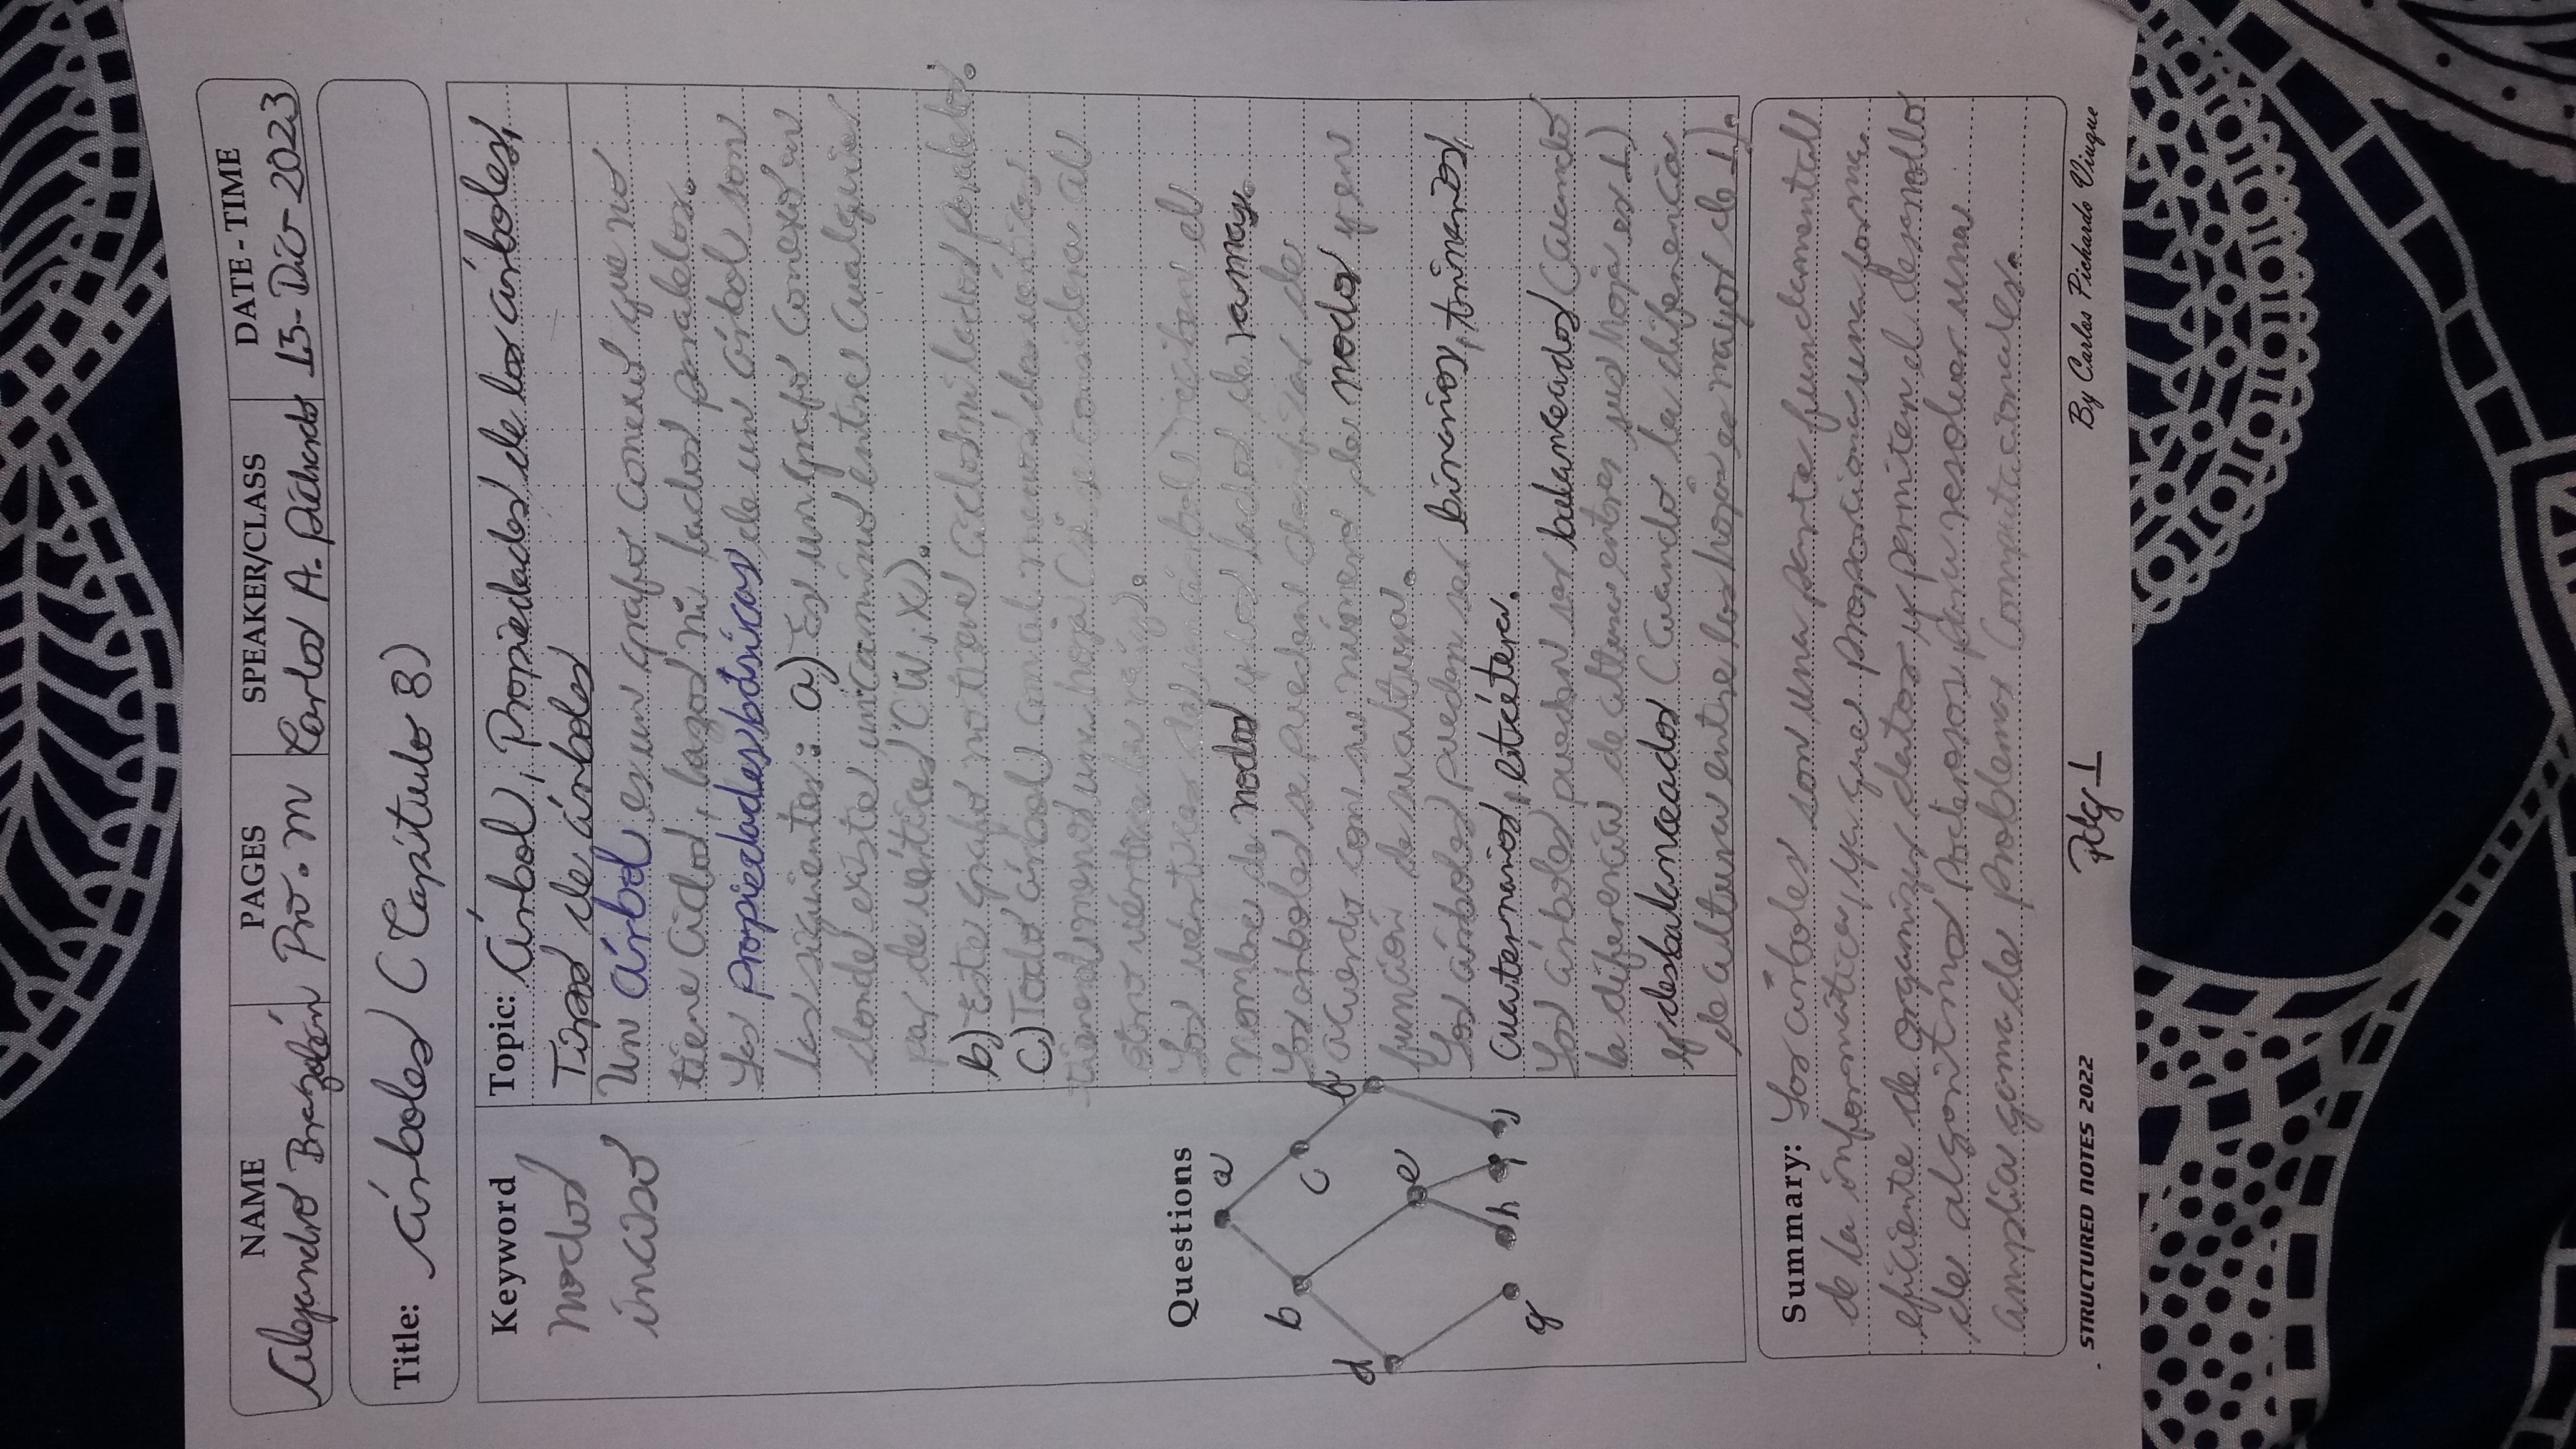 NAME PAGES SPEAKER/CLASS DATE - TIME
Alejandro Brazobán Pro. M Carlos A. Pichardo 15-Dic-2023
Title: árboles (Capítulo 8)
Keyword
nodos
inciso
Topic: Árbol, Propiedades de los árboles,
Tipos de árboles
Un árbol es un grafo conexo que no
tiene ciclos, lazos ni lados paralelos.
Las propiedades básicas de un árbol son
las siguientes: a) Es un grafo conexo en
donde existe un camino entre cualquier
par de vértices (W, X).
b) Este grafo no tiene ciclos ni lados paralelos.
c) Todo árbol con al menos dos vértices
tiene al menos una hoja (si se considera al
otro vértice la raíz).
Los vértices de un árbol reciben el
nombre de nodos y los lados de ramas.
Los árboles se pueden clasificar de
acuerdo con su número de nodos y en
función de su altura.
Los árboles pueden ser binarios, trinarios,
cuaternarios, etcétera.
Los árboles pueden ser balanceados (cuando
la diferencia de altura entre sus hoja es 1)
y desbalanceados (cuando la diferencia
de altura entre las hojas es mayor de 1).
Questions
a
b
c
d
f
e
g
h i j
Summary: Los árboles son una parte fundamental
de la informática, ya que proporciona una forma
eficiente de organizar datos y permiten el desarrollo
de algoritmos poderosos para resolver una
amplia gama de problemas computacionales.
STRUCTURED NOTES 2022 Pág 1 By Carlos Pichardo Viuque